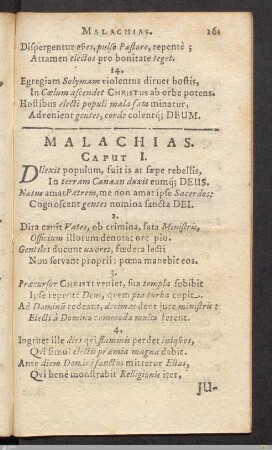 MALACHIAS. 161
Dispergentur oves, pulso Pastore, repentè;
Attamen electos pro bonitate teget.
14.
Egregiam Solymam violentus diruet hostis,
In Cœlum ascendet CHRISTUS ab orbe potens.
Hostibus electi populi mala fata minatur,
Advenient gentes, corde colentq; DEUM.
MALACHIAS.
CAPUT I.
DIlexit populum, fuit is at sæpe rebellis,
In terram Canaan duxit eumq; DEUS.
Natus amat Patrem, me non amat ipse Sacerdos:
Cognoscent gentes nomina sancta DEI.
2.
Dira canit Vates, ob crimina, fata Ministris,
Officium illorum denotat ore pio.
Gentiles ducunt uxores, fœdera lecti
Non servant proprii: pœna manebit eos.
3.
Præcursor CHRISTI veniet, sua templa subibit
Ipse repentè Deus, quem pia turba cupit.
Ad Dominū redeant, decimas dent jure ministris:
Electi à Domino commoda multa ferent.
4.
Ingruet ille dies qui flammis perdet iniquos,
Qui simul electis præmia magna dabit.
Ante diem Domini sanctus mittetur Elias,
Qui bene monstrabit Relligionis iter.
JU-